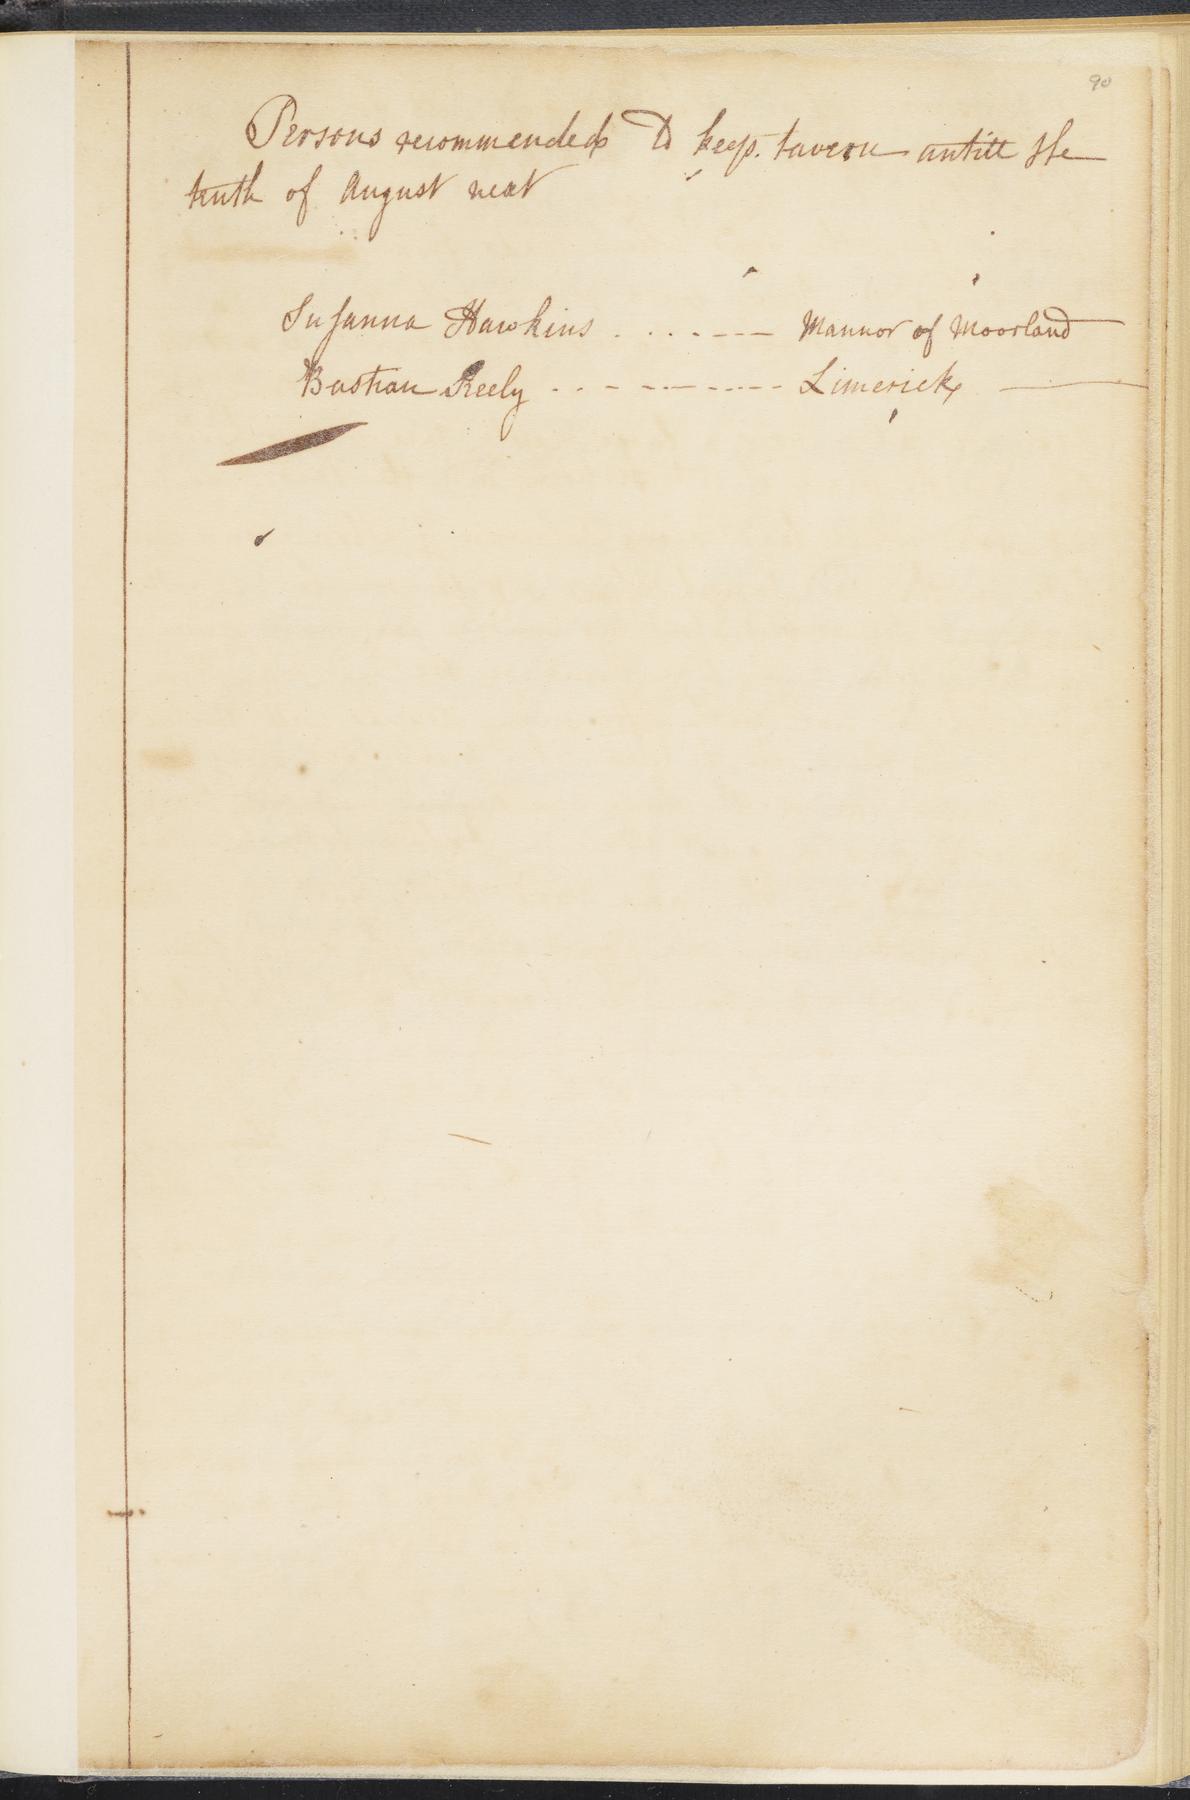 90
Persons recommended to keep tavern untill the
tenth of August next
Susanna Hawkins . . . . - - - Mannor of Moorland
Bastian Reely . . - - - - . . . - Limerick